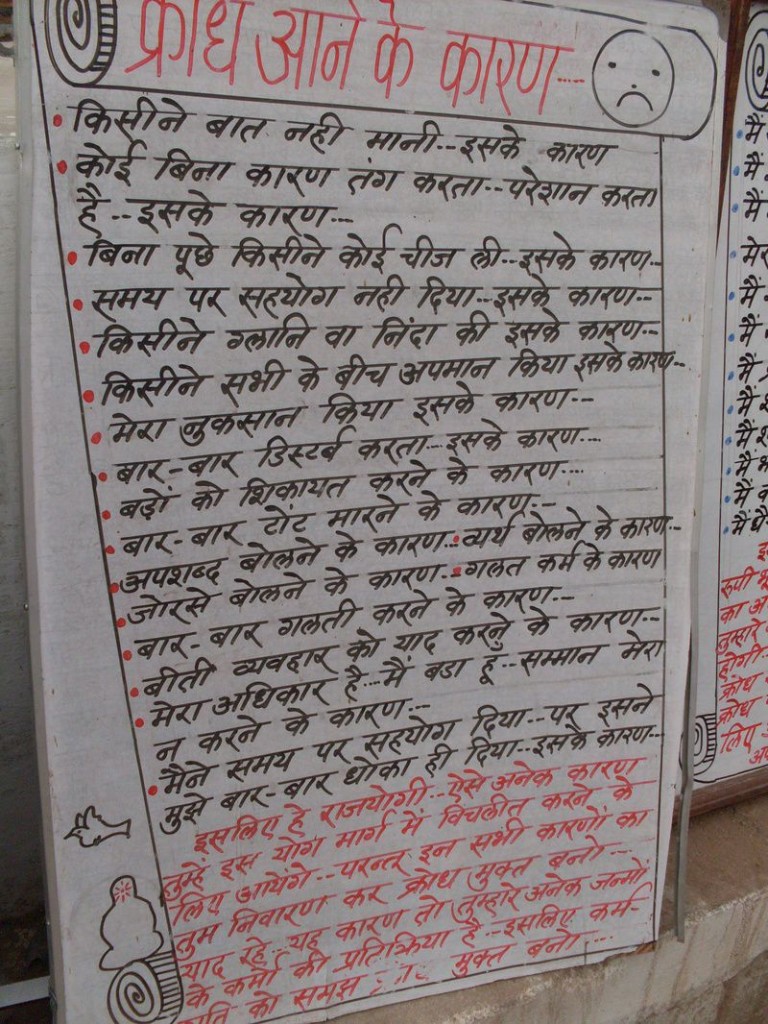 क्रोध आने के कारण....
• किसीने बात नही मानी..इसके कारण
• कोई बिना कारण तंग करता..परेशान करता
है..इसके कारण...
• बिना पूछे किसीने कोई चीज ली..इसके कारण..
• समय पर सहयोग नही दिया..इसके कारण..
• किसीने ग्लानि वा निंदा की इसके कारण..
• किसीने सभी के बीच अपमान किया इसके कारण..
• मेरा नुकसान किया इसके कारण..
• बार-बार डिस्टर्ब करता...इसके कारण...
• बड़ों को शिकायत करने के कारण...
• बार-बार टोंट मारने के कारण..
• अपशब्द बोलने के कारण..• व्यर्थ बोलने के कारण..
• जोरसे बोलने के कारण..• गलत कर्म के कारण
• बार-बार गलती करने के कारण..
• बीती व्यवहार को याद करने के कारण..
• मेरा अधिकार है...मैं बडा हूं..सम्मान मेरा
न करने के कारण...
• मैने समय पर सहयोग दिया..पर इसने
मुझे बार-बार धोका ही दिया..इसके कारण..
इसलिए हे राजयोगी..ऐसे अनेक कारण
तुम्हें इस योग मार्ग में विचलीत करने के
लिए आयेंगे..परन्तू इन सभी कारणों का
तुम निवारण कर क्रोध मुक्त बनो...
याद रहे यह कारण तो तुम्हारे अनेक जन्मों
के कर्मो की प्रतिक्रिया है..इसलिए कर्म-
को समझ मुक्त बनो...
मैं
मैं
मैं
मेर
मैं
मैं
मैं
मैं
मैं
मैं
मैं
रूपी
का
तुम्हारे
होगी..
क्रोध
क्रोध
लिए